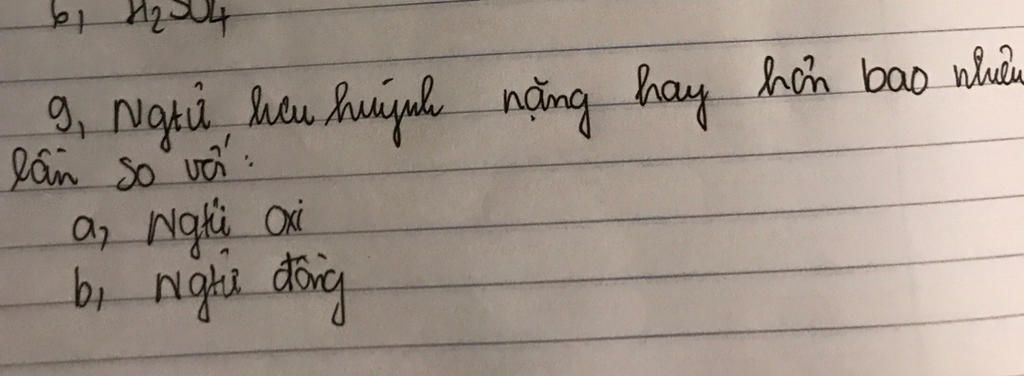 b, H2SO4
9, Ngtử lưu huỳnh nặng hay hơn bao nhiêu
lần so với:
a, Ngtử oxi
b, Ngtử đồng